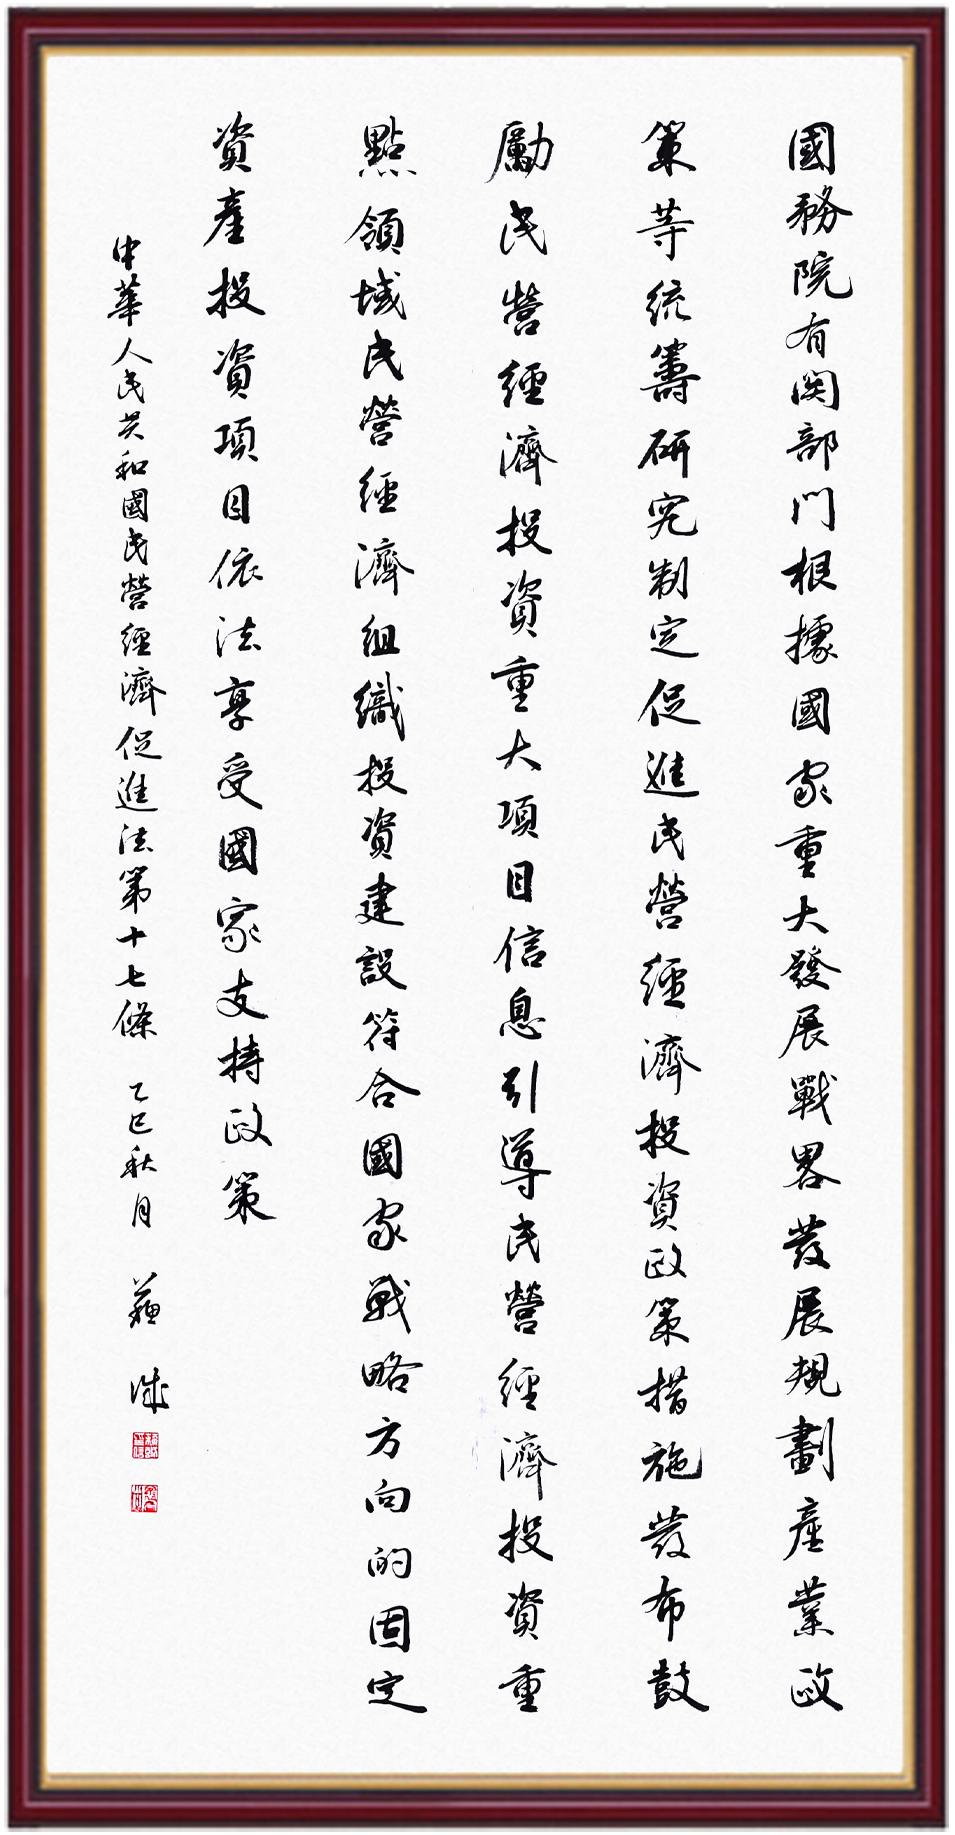 國務院有関部門根據國家重大發展戰畧發展規劃產業政
策等統籌研究制定促進民營經濟投資政策措施發布鼓
勵民營經濟投資重大項目信息引導民營經濟投資重
點領域民營經濟組織投資建設符合國家戰略方向的固定
資產投資項目依法享受國家支持政策
中華人民共和國民營經濟促進法第十七條 乙巳秋月 蘇誠